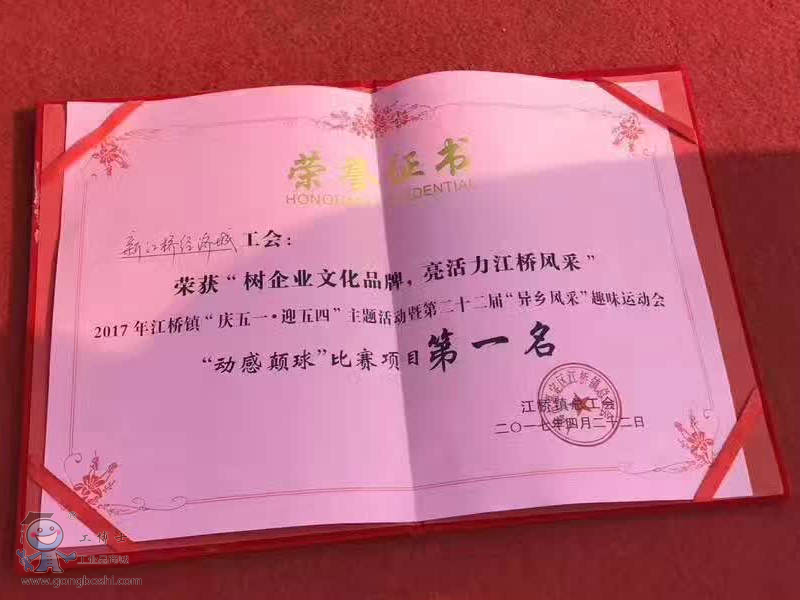 荣誉证书
HONOR CREDENTIAL
新江桥经济城工会：
荣获“树企业文化品牌，亮活力江桥风采”
2017年江桥镇“庆五一·迎五四”主题活动暨第二十二届“异乡风采”趣味运动会
“动感颠球”比赛项目第一名
江桥镇总工会
二〇一七年四月二十二日
工博士
工业品商城
www.gongboshi.com